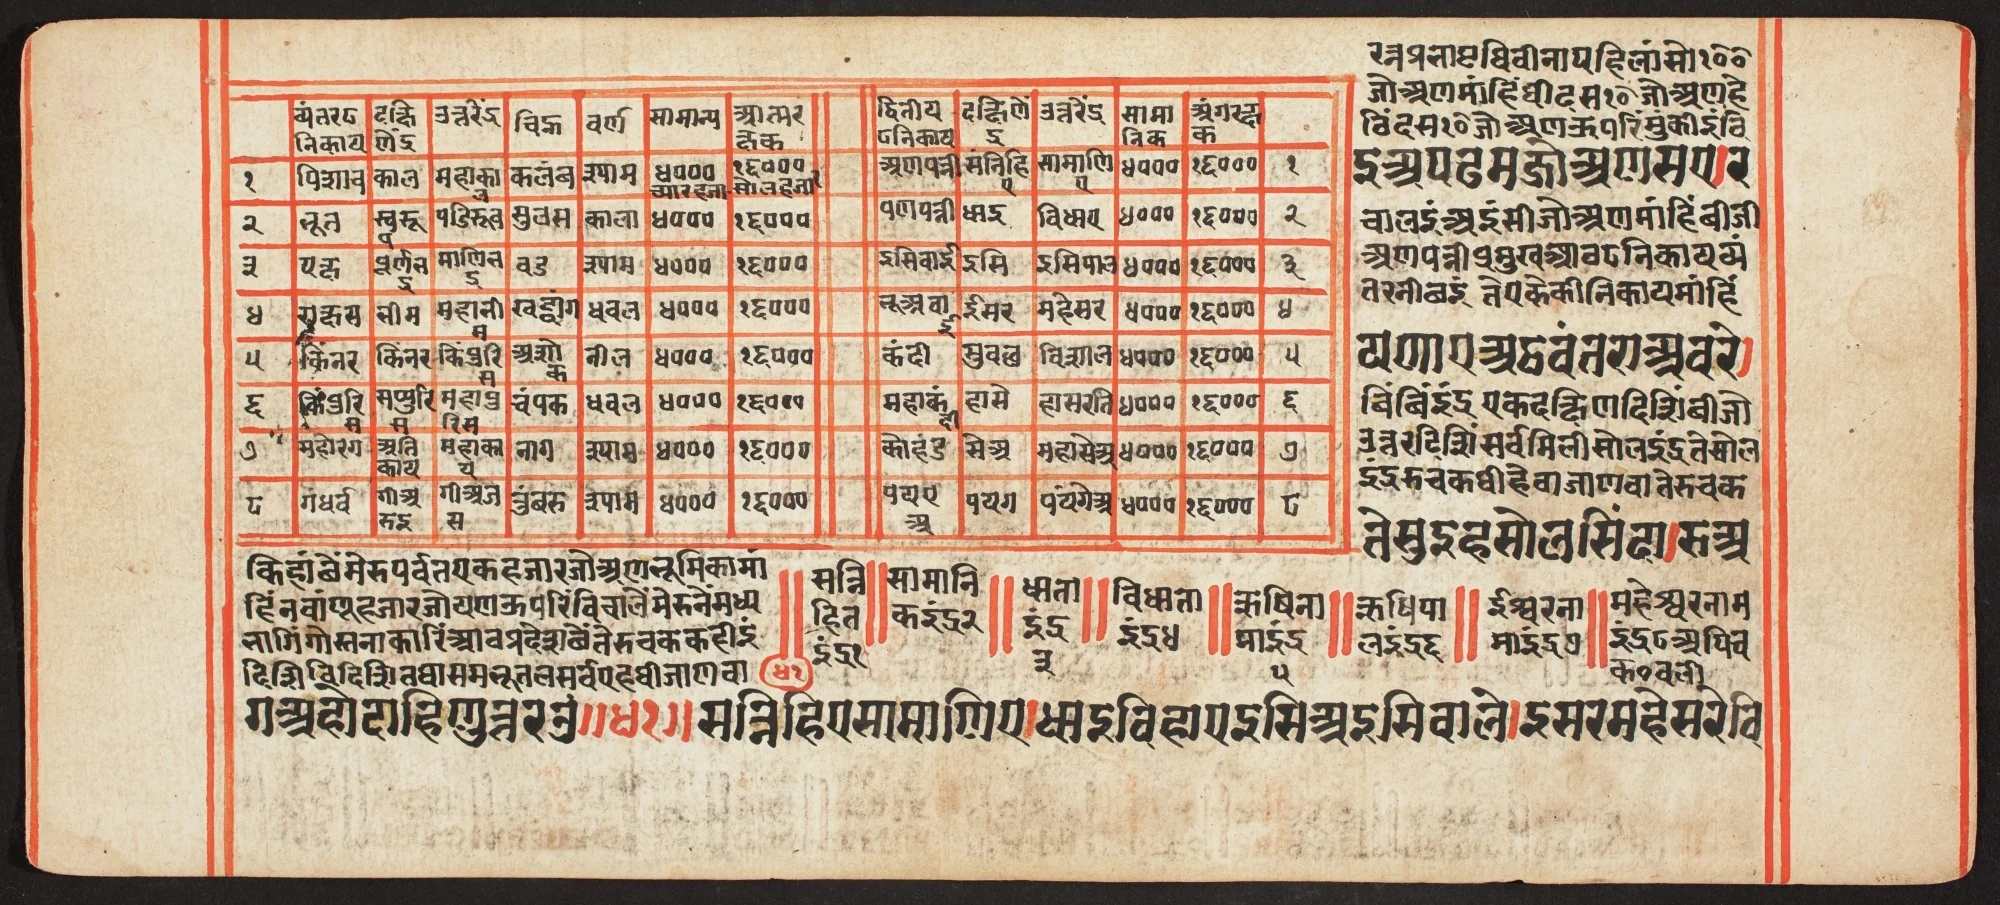 व्यंतर८ निकाय दक्षिणेंद्र उत्तरेंद्र चिह्न वर्ण सामान्य आत्मरक्षक
१ पिशाच काल महाकाल कलंब श्याम ४००० १६०००
च्यारहजार सोलहजार
२ भूत सुरूप पडिरूव सुलस काला ४००० १६०००
३ यक्ष पूर्णभद्र माणिभद्र वड श्याम ४००० १६०००
४ राक्षस भीम महाभीम खट्वांग धवल ४००० १६०००
५ किंनर किंनर किंपुरिस अशोक नील ४००० १६०००
६ किंपुरिस सप्पुरिस महापुरिस चंपक धवल ४००० १६०००
७ महोरग अतिकाय महाकाय नाग श्याम ४००० १६०००
८ गंधर्व गीअरइ गीअजस तुंबरु श्याम ४००० १६०००
द्वितीय ८निकाय दक्षिणेंद्र उत्तरेंद्र सामानिक अंगरक्षक
अणपन्नी संनिहिए सामाणिए ४००० १६००० १
पणपन्नी धाइ विधाए ४००० १६००० २
इसिवाई इसि इसिपाल ४००० १६००० ३
भूअवाई ईसर महेसर ४००० १६००० ४
कंदी सुवछ विशाल ४००० १६००० ५
महाकंदी हास हासरति ४००० १६००० ६
कोहंड सेअ महासेअ ४००० १६००० ७
पयए पयग पयंगेअ ४००० १६००० ८
रत्नप्रभापृथिवीनापहिलांसो१००
जोअणमांहिंथीदस१० जोअणहे
ठिंदस१०जोअणऊपरिंमुंकीइंवि
इअपढमजोअणसए। र
चालइंअइंसीजोअणमांहिंबीजी
अणपन्नीप्रमुखआठनिकायव्यं
तरनीछइं तेएकेकीनिकायमांहिं
यणाएअट्ठवंतराअवरे।
बिंबिंइंद्र एकदक्षिणदिशिंबीजो
उत्तरदिशिंसर्वमिलीसोलइंद्रतेसोल
इंद्ररुचकथीहेठाजाणवातेरुचक
तेसुइहसोलसिंदा। रुअ
किहांछैंमेरुपर्वतएकहजारजोअणभूमिकामां
हिंनवांणूहजारजोयणऊपरिंविचालैंमेरुनैंमध्य
भागिंगोस्तनाकारिंआठप्रदेशछैंतेरुचककहीइं
दिशिविदिशितथासमभूतलसर्वएहथीजाणवा ४१
सन्निहितइंद्र१ सामानिकइंद्र२ धाताइंद्र३ विधाताइंद्र४ ऋषिनामाइंद्र५ ऋषिपालइंद्र६ ईश्वरनामाइंद्र७ महेश्वरनामइंद्र८
गअहोदाहिणुत्तरत्तुं॥४१॥ सन्निहिएसामाणिए। धाइविहाएइसिअइसिवाले। इसरमहेसरेवि